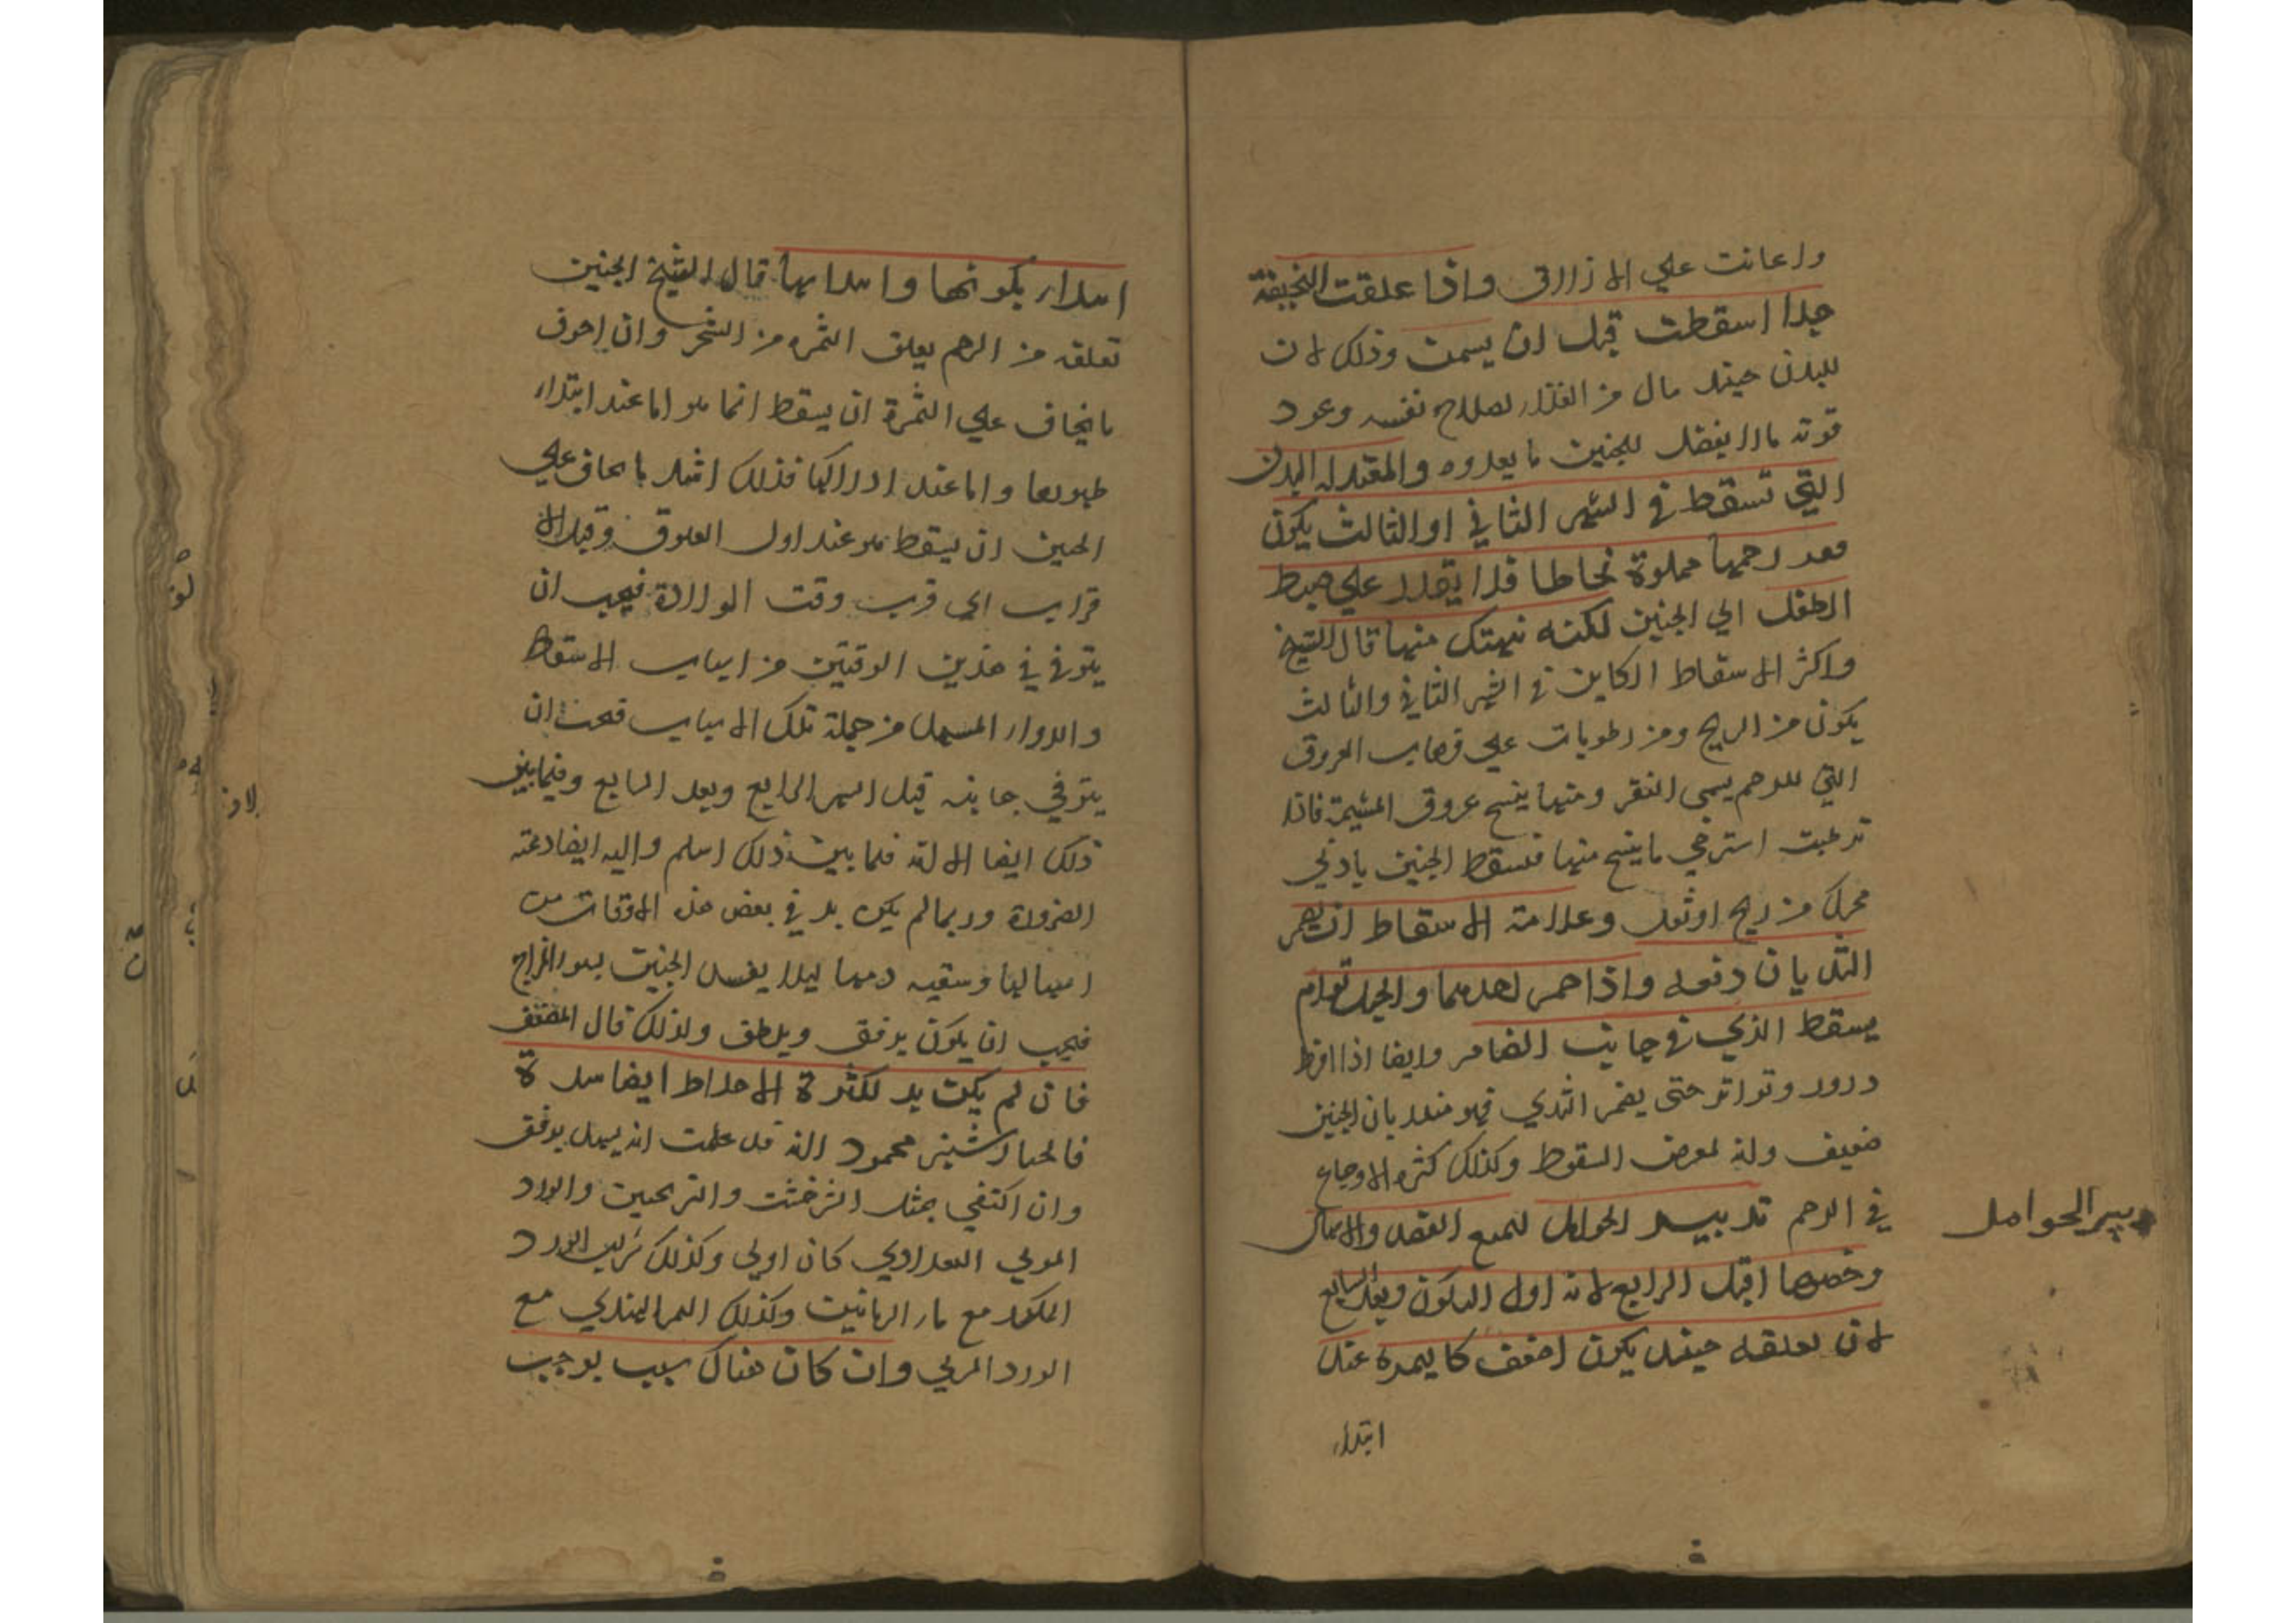 واعانت علي الازلاق واذا علقت النحيفة
جدا اسقطت قبل ان يسمن وذلك لان
للبدن حينئذ مال من الغذاء لصلاح نفسه وعود
قوته مالا يفضل للجنين ما يغذوه والمعتدله البدن
التي تسقط في الشهر الثاني او الثالث يكون
مقعر رحمها مملوة مخاطا فلا يقدر علي ضبط
الطفل الي الجنين لكنه ينهتك منها قال الشيخ
واكثر الاسقاط الكاين في الشهر الثاني والثالث
يكون من الريح ومن رطوبات علي فوهات العروق
التي للرحم يسمي النقر ومنها ينسج عروق المشيمة فاذا
ترطبت استرخي ما ينسج منها فسقط الجنين بادني
محرك من ريح او ثقل وعلامة الاسقاط ان يضمر
الثديان دفعه واذا ضمر احدهما والحبل توام
يسقط الذي في جانب الضامر وايضا اذا افرط
درور وتواتر حتي يضمر الثدي فهو منذر بان الجنين
ضعيف وانه لمعرض السقوط وكذلك كثرة الاوجاع
في الرحم تدبير الحوامل لتمنع الفصد والاسهال
وخصوصا قبل الرابع لانه اول التكون وبعد السابع
لان تعلقه حينئذ يكون اضعف كالثمرة عند
ابتداء
تدبير الحوامل
ابتداء تكونها وابتدائها قال الشيخ الجنين
تعلقه من الرحم تعلق الثمره من الشجر وان اخوف
ما يخاف علي الثمرة ان يسقط انما هو اما عند ابتداء
ظهورها واما عند ادراكها فذلك اشد ما يخاف علي
الجنين ان يسقط هو عند اول العلوق وقبل الا
قراب الي قرب وقت الولادة فيجب ان
يتوقي في هذين الوقتين من اسباب الاسقاط
والدواء المسهل من جملة تلك الاسباب فيجب ان
يتوقي جانبه قبل الشهر الرابع وبعد السابع وفيما بين
ذلك ايضا الا انه فيما بين ذلك اسلم واليه ايضا دعته
الضرورة وربما لم يكن بد في بعض هذه الاوقات من
اسهالها وتنقيه دمها ليلا يفسد الجنين بسو المزاج
فيجب ان يكون برفق ويلطف ولذلك قال المصنف
فان لم يكن بد لكثرة الاخلاط ايضا سدة
فالخيار شنبر محمود لانه قد علمت انه يسهل برفق
وان اكتفي بمثل الشرخشت والترنجبين والورد
المربي البغدادي كان اولي وكذلك شراب الورد
المكرر مع ماء الرمانين وكذلك التمر الهندي مع
الورد المربي وان كان هناك سبب يوجب